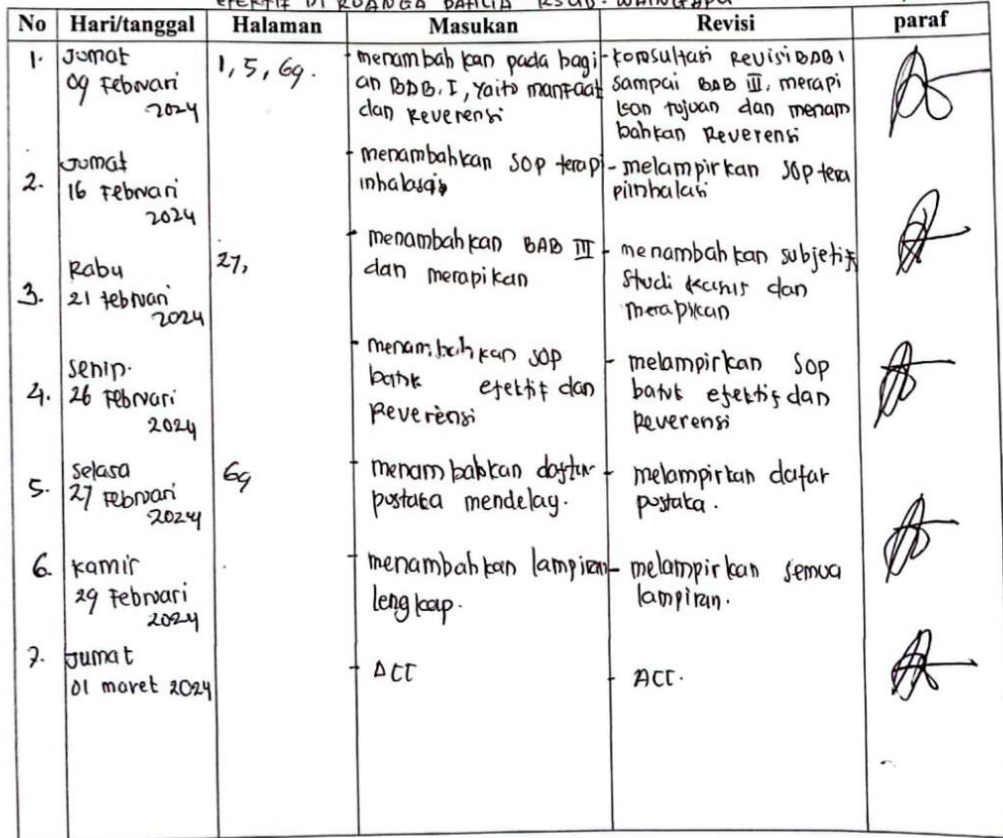 EFEKTIF DI RUANGA DAHLIA RSUD. WAINGAPU
No Hari/tanggal Halaman Masukan Revisi paraf
1. Jumat 09 Februari 2024
1, 5, 69.
- menambahkan pada bagi
an BAB. I, Yaito manfaat
dan Reverensi
- konsultasi Revisi BAB I
sampai BAB III, merapi
kan tujuan dan menam
bahkan Reverensi
2. Jumat
16 Februari
2024
- menambahkan SOP terapi
inhalasi
- melampirkan SOP tera
piinhalasi
3. Rabu
21 februari
2024
27,
- menambahkan BAB III
dan merapikan
- menambahkan subjetif
Studi kasus dan
merapikan
4. Senin.
26 Februari
2024
- menambahkan SOP
batuk efektif dan
Reverensi
- melampirkan SOP
batuk efektif dan
Reverensi
5. Selasa
27 Februari
2024
69
- menambahkan daftar
pustaka mendelay.
- melampirkan dafar
pustaka.
6. Kamis
29 Februari
2024
- menambahkan lampiran
lengkap.
- melampirkan semua
lampiran.
7. Jumat
01 maret 2024
- ACC
- ACC.